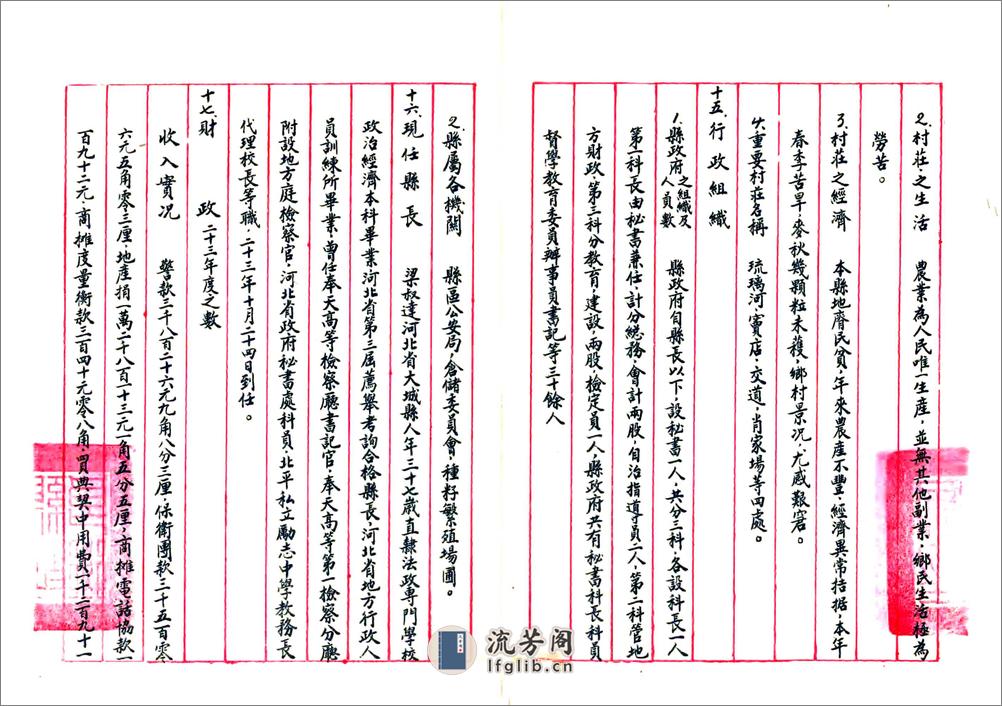 2.村莊之生活　農業為人民唯一生產，並無其他副業，鄉民生活極為
勞苦。
3.村莊之經濟　本縣地瘠民貧，年來農產不豐，經濟異常拮据，本年
春季苦旱，麥秋幾顆粒未獲，鄉村景況，尤感艱窘。
4.重要村莊名稱　琉璃河，竇店，交道，肖家場等四處。
十五.行政組織
1.縣政府之組織及人員數　縣政府自縣長以下，設秘書一人，共分三科，各設科長一人
第一科長由秘書兼任，計分總務，會計兩股，自治指導員二人，第二科管地
方財政，第三科分教育，建設，兩股，檢定員一人，縣政府共有秘書科長科員
督學教育委員辦事員書記等三十餘人
2.縣屬各機關　縣區公安局，倉儲委員會，種籽繁殖場圃。
十六.現任縣長　梁叔達河北省大城縣人年三十七歲直隸法政專門學校
政治經濟本科畢業河北省第三屆薦舉考詢合格縣長，河北省地方行政人
員訓練所畢業，曾任奉天高等檢察廳書記官，奉天高等第一檢察分廳
附設地方庭檢察官，河北省政府秘書處科員，北平私立勵志中學教務長
代理校長等職，二十三年十月二十四日到任。
十七.財政　二十三年度之數
收入實況　警款三千八百二十六元九角八分三厘，保衛團款三十五百零
六元五角零三厘，地產捐一萬二千八百十三元一角五分五厘，商攤電話協款一
百九十二元，商攤度量衡款三百四十元零八角，買典契中用費一十二百九十一
流芳阁
lfglib.cn